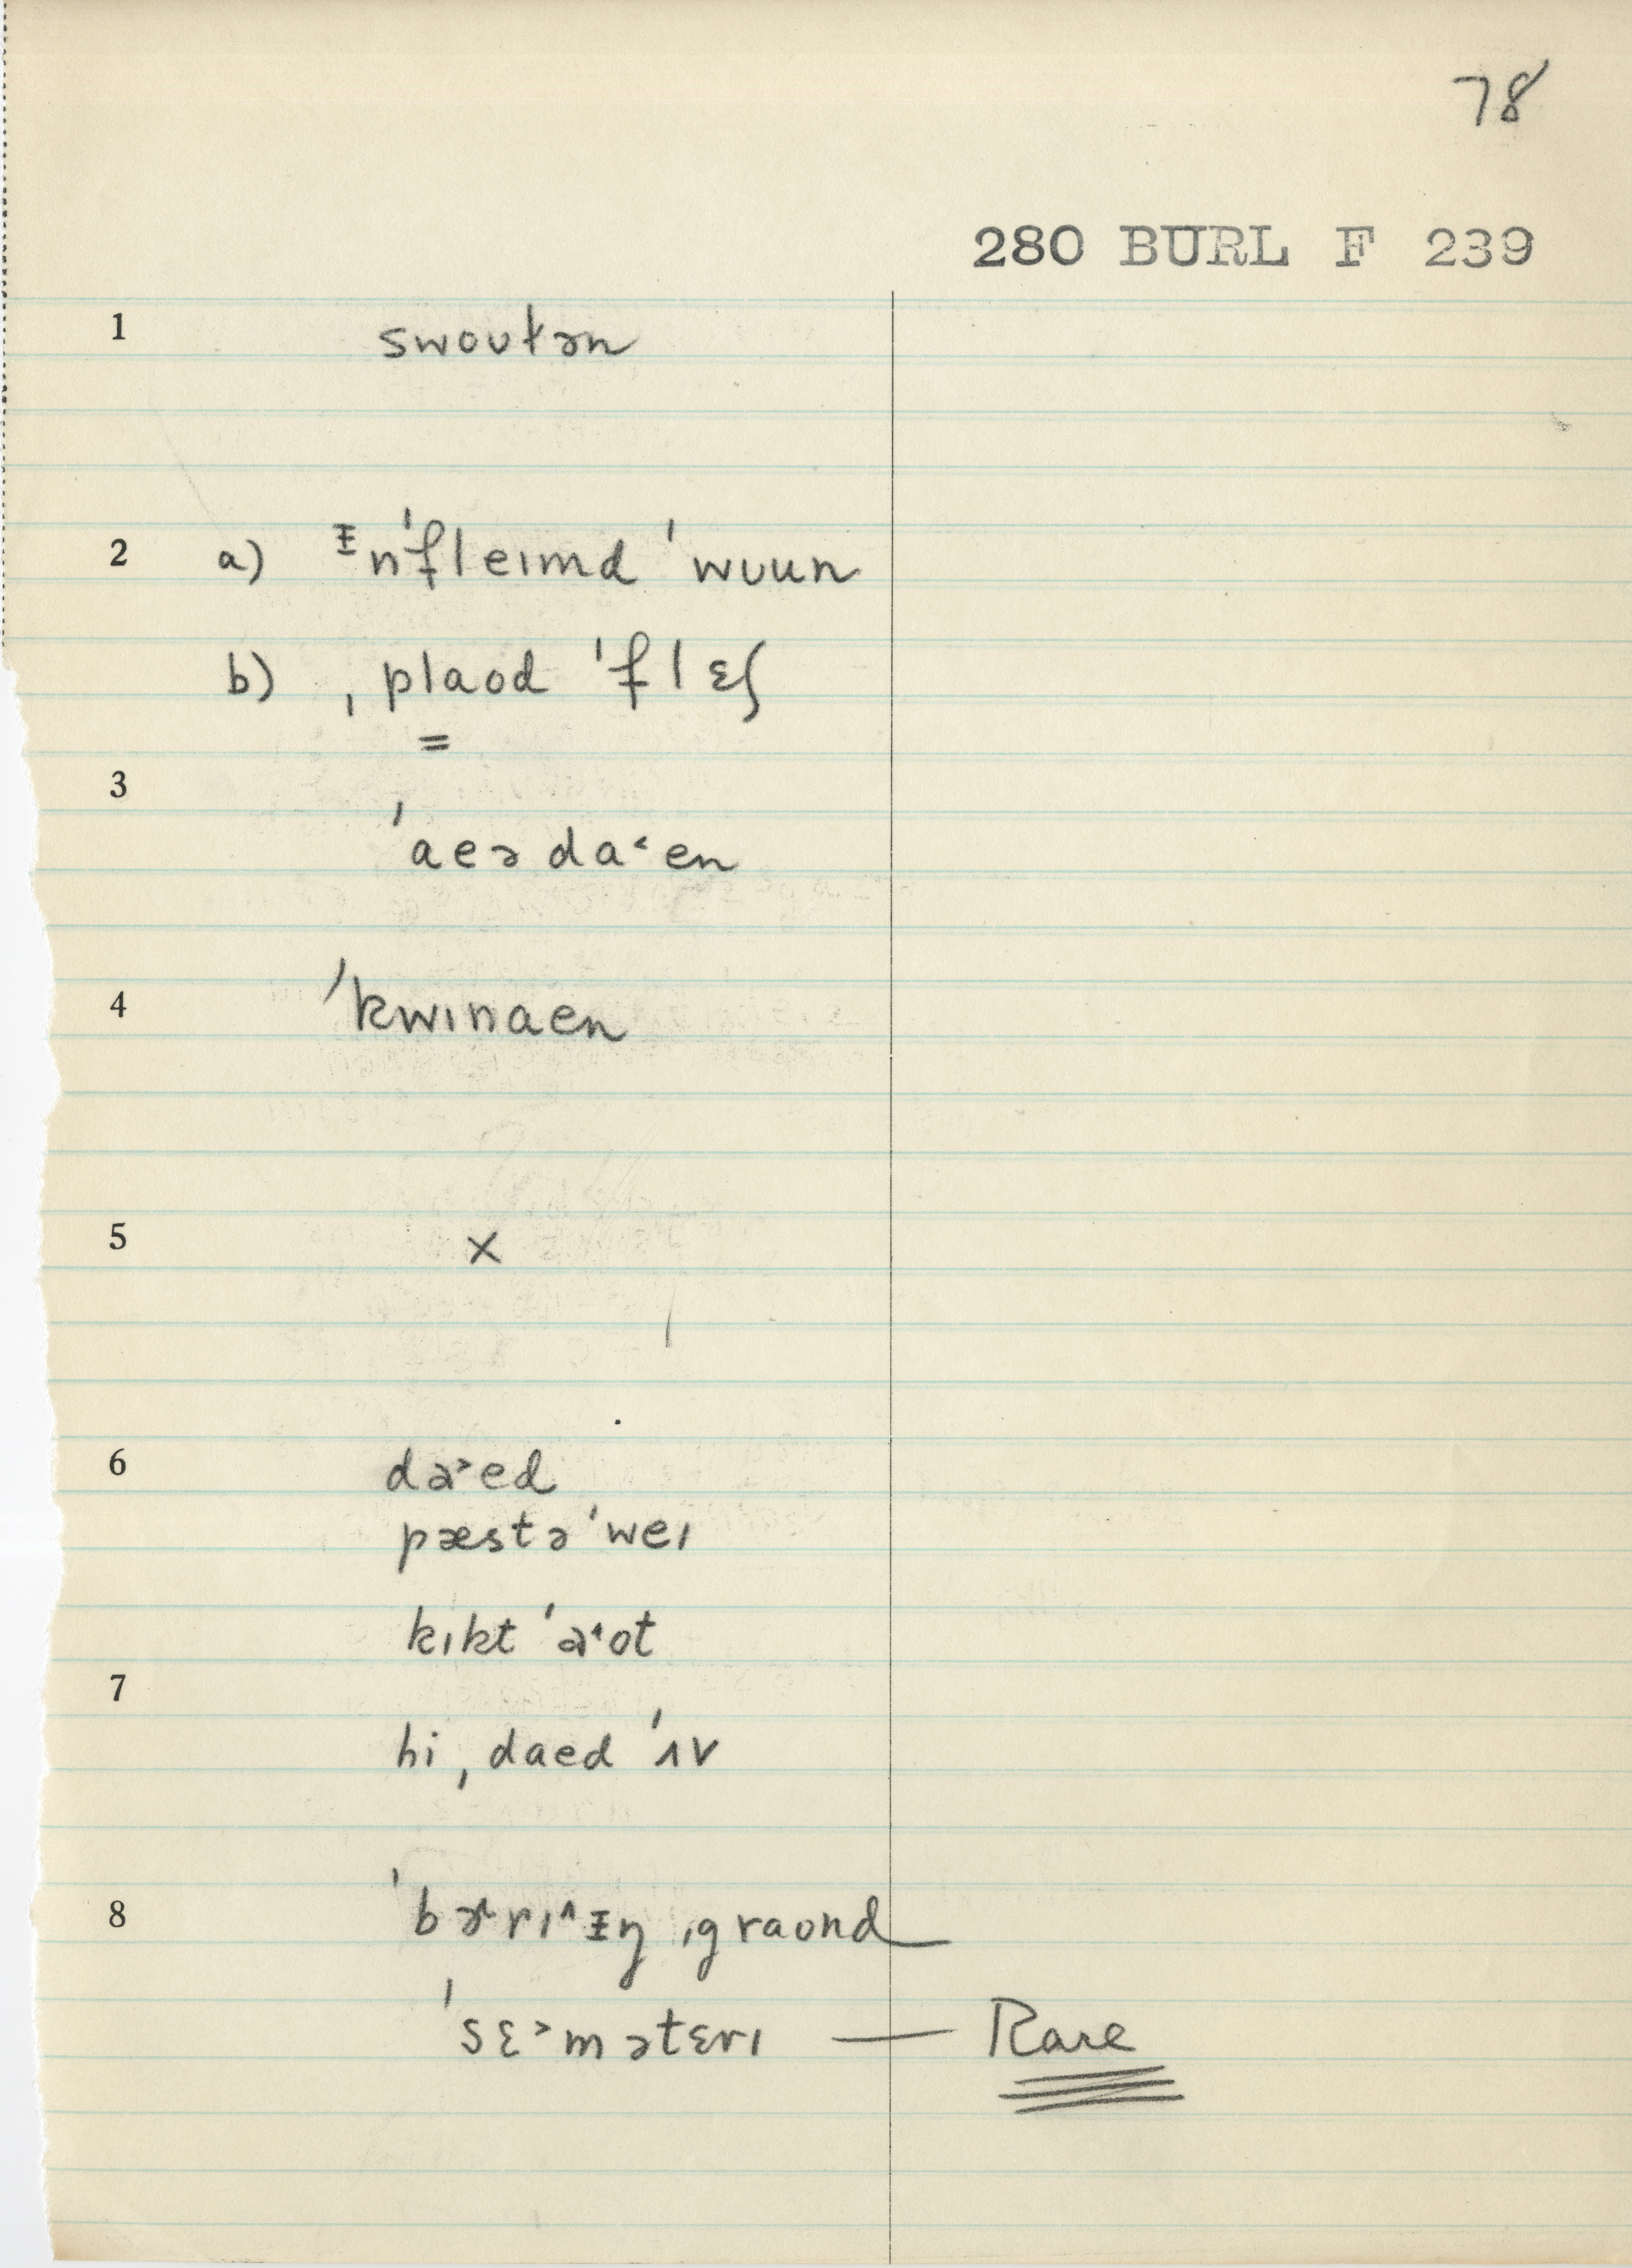 78
280 BURL F 239
1 swoʊɫən
2 a) ᵻn'fleɪmd 'wuun
b) ˌplaod 'flɛʃ
=
3 'aeə da˂en
4 'kwɪnaen
5 x
6 da˃ed
pæstə'weɪ
kɪkt 'a˂ot
7 hi ˌdaed 'ʌv
8 'bɚrɪ^ᵻŋ ˌgraond
'sɛ˃mətɛrɪ — Rare